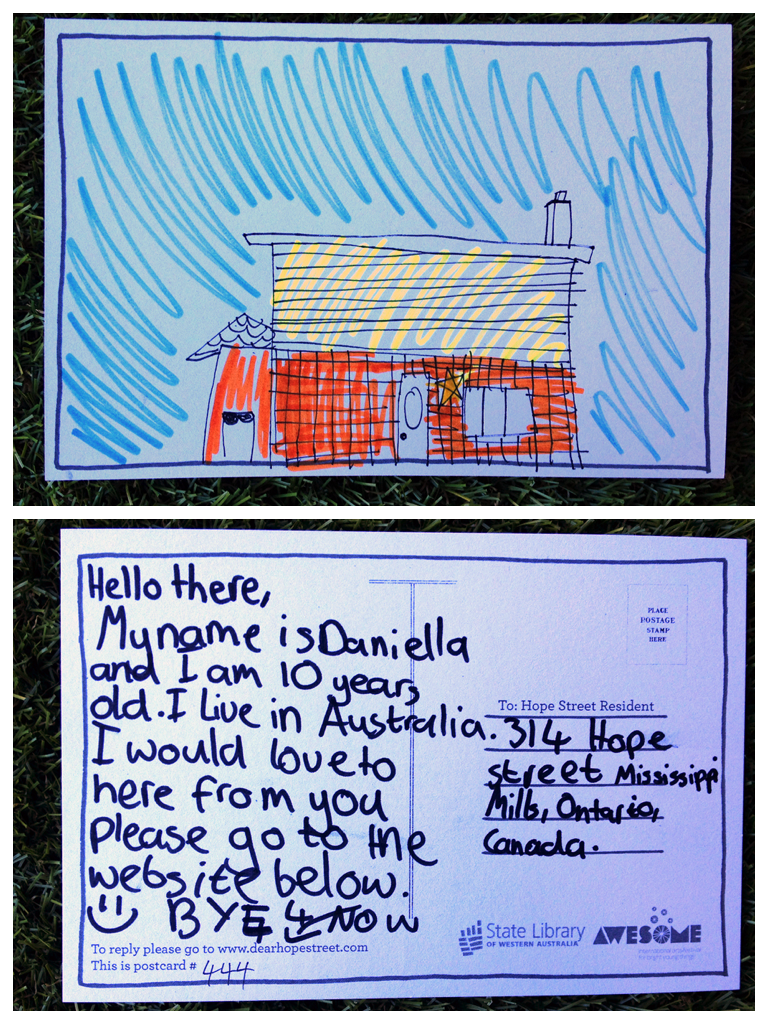 Hello there,
My name is Daniella
and I am 10 years
old. I Live in Australia.
I would love to
here from you
please go to the
website below.
BYE 4 NOW
To reply please go to www.dearhopestreet.com
This is postcard # 444
PLACE
POSTAGE
STAMP
HERE
To: Hope Street Resident
314 Hope
street Mississippi
Mills, Ontario,
Canada.
State Library
OF WESTERN AUSTRALIA
AWESOME